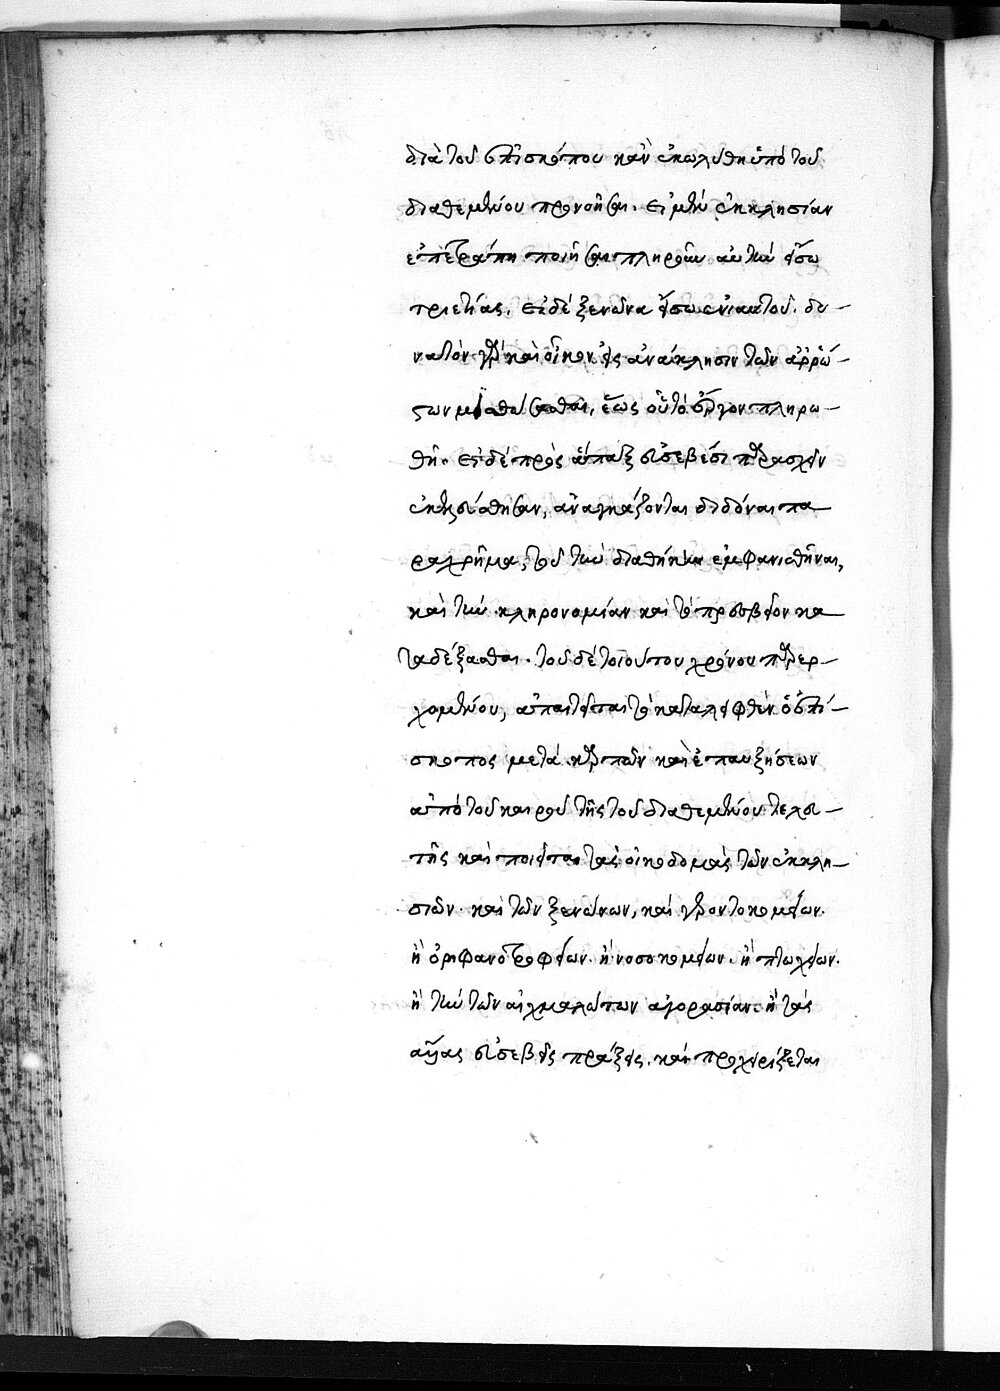 διὰ τοῦ ἐπισκόπου κἂν ἐκωλύθη ὑπὸ τοῦ
διαθεμένου προνοῆσαι. εἰ μὲν ἐκκλησίαν
ἐπετράπη ποιῆσαι πληροῦν αὐτὴν εἴσω
τριετίας. εἰ δὲ ξενῶνα εἴσω ἐνιαυτοῦ. δυ-
νατὸν γὰρ καὶ οἶκον εἰς ἀνάκλησιν τῶν ἀρρώ-
στων μισθώσασθαι, ἕως οὗ τὸ ἔργον πληρω-
θῇ. εἰ δὲ πρὸς ἅπαξ εὐσεβέσι παρασχεῖν
ἐκελεύσθησαν, ἀναγκάζονται διδόναι πα-
ραχρῆμα, τοῦ τὴν διαθήκην ἐμφανισθῆναι,
καὶ τὴν κληρονομίαν καὶ τὸ πρεσβεῖον κα-
ταδέξασθαι. τοῦ δὲ τοιούτου χρόνου παρερ-
χομένου, ἀπαιτεῖται τὸ καταλειφθὲν ὁ ἐπί-
σκοπος μετὰ καρπῶν καὶ ἐπαυξήσεων
ἀπὸ τοῦ καιροῦ τῆς τοῦ διαθεμένου τελευ-
τῆς καὶ ποιεῖται τὰς οἰκοδομὰς τῶν ἐκκλη-
σιῶν. καὶ τῶν ξενώνων, καὶ γεροντοκομείων.
ἢ ὀρφανοτροφείων. ἢ νοσοκομείων. ἢ πτωχείων.
ἢ τὴν τῶν αἰχμαλώτων ἀγορασίαν. ἢ τὰς
ἄλλας εὐσεβεῖς πράξεις. καὶ προχειρίζεται